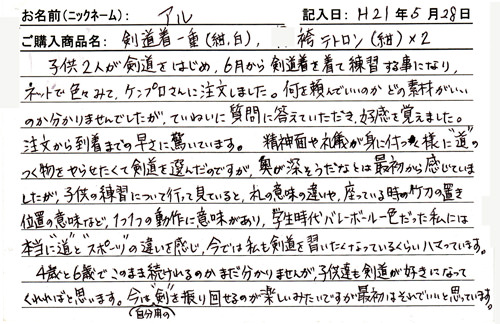 お名前(ニックネーム): アル 記入日: H21年5月28日
ご購入商品名: 剣道着一重(紺,白), 袴テトロン(紺)×2
子供2人が剣道をはじめ、6月から剣道着を着て練習する事になり、
ネットで色々みて、ケンプロさんに注文しました。何を頼んでいいのかどの素材がいい
のか分かりませんでしたが、ていねいに質問に答えていただき、好感を覚えました。
注文から到着までの早さに驚いています。 精神面や礼儀が身に付く様に"道"の
つく物をやらせたくて剣道を選んだのですが、奥が深そうだなとは最初から感じていま
したが、子供の練習について行って見ていると、礼の意味の違いや、座っている時の竹刀の置き
位置の意味など、1つ1つの動作に意味があり、学生時代バレーボール一色だった私には
本当に"道"と"スポーツ"の違いを感じ、今では私も剣道を習いたくなっているくらいハマっています。
4歳と6歳でこのまま続けれるのかまだ分かりませんが、子供達も剣道が好きになって
くれればと思います。今は"剣"を振り回せるのが楽しいみたいですが最初はそれでいいと思っています。
(自分用の)